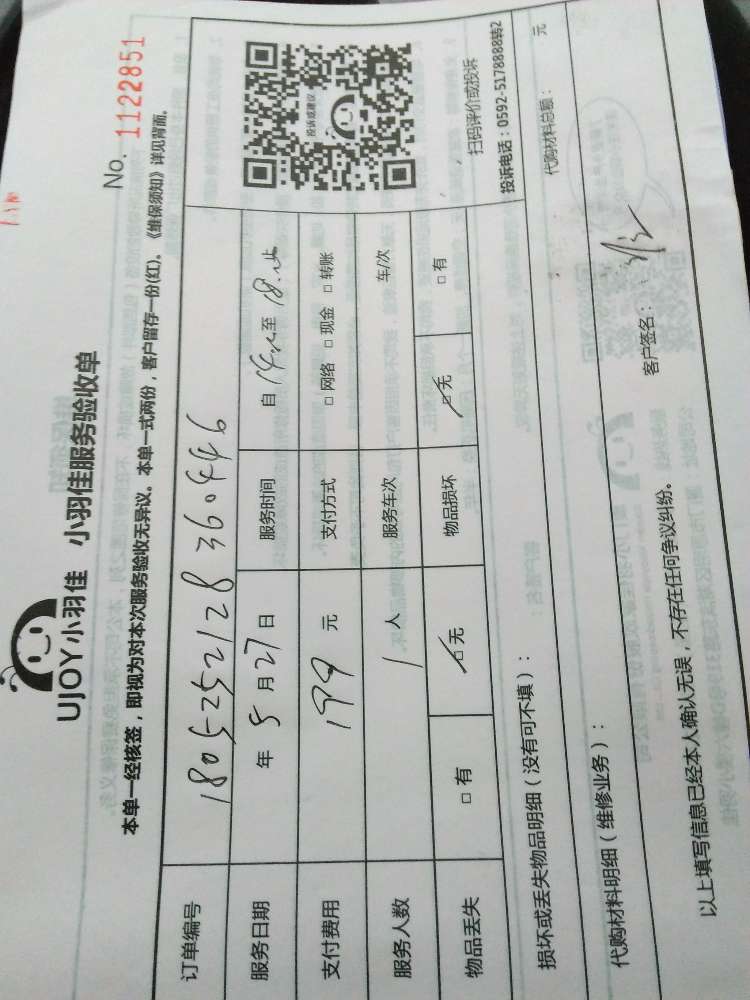 UJOY小羽佳 小羽佳服务验收单
No. 1122851
本单一经核签，即视为对本次服务验收无异议。本单一式两份，客户留存一份(红)。《维保须知》详见背面。
订单编号 180525212836044 6
服务日期 年 5 月 27 日 服务时间 自 14: 至 18: 止
支付费用 199 元 支付方式 □ 网络 □ 现金 □ 转账
服务人数 1 人 服务车次 车/次
物品丢失 □ 有 ☑ 无 物品损坏 ☑ 无 □ 有
投诉或建议
扫码评价或投诉
投诉电话：0592-5178888转2
损坏或丢失物品明细（没有可不填）：
代购材料明细（维修业务）： 代购材料总额： 元
以上填写信息已经本人确认无误，不存在任何争议纠纷。 客户签名：